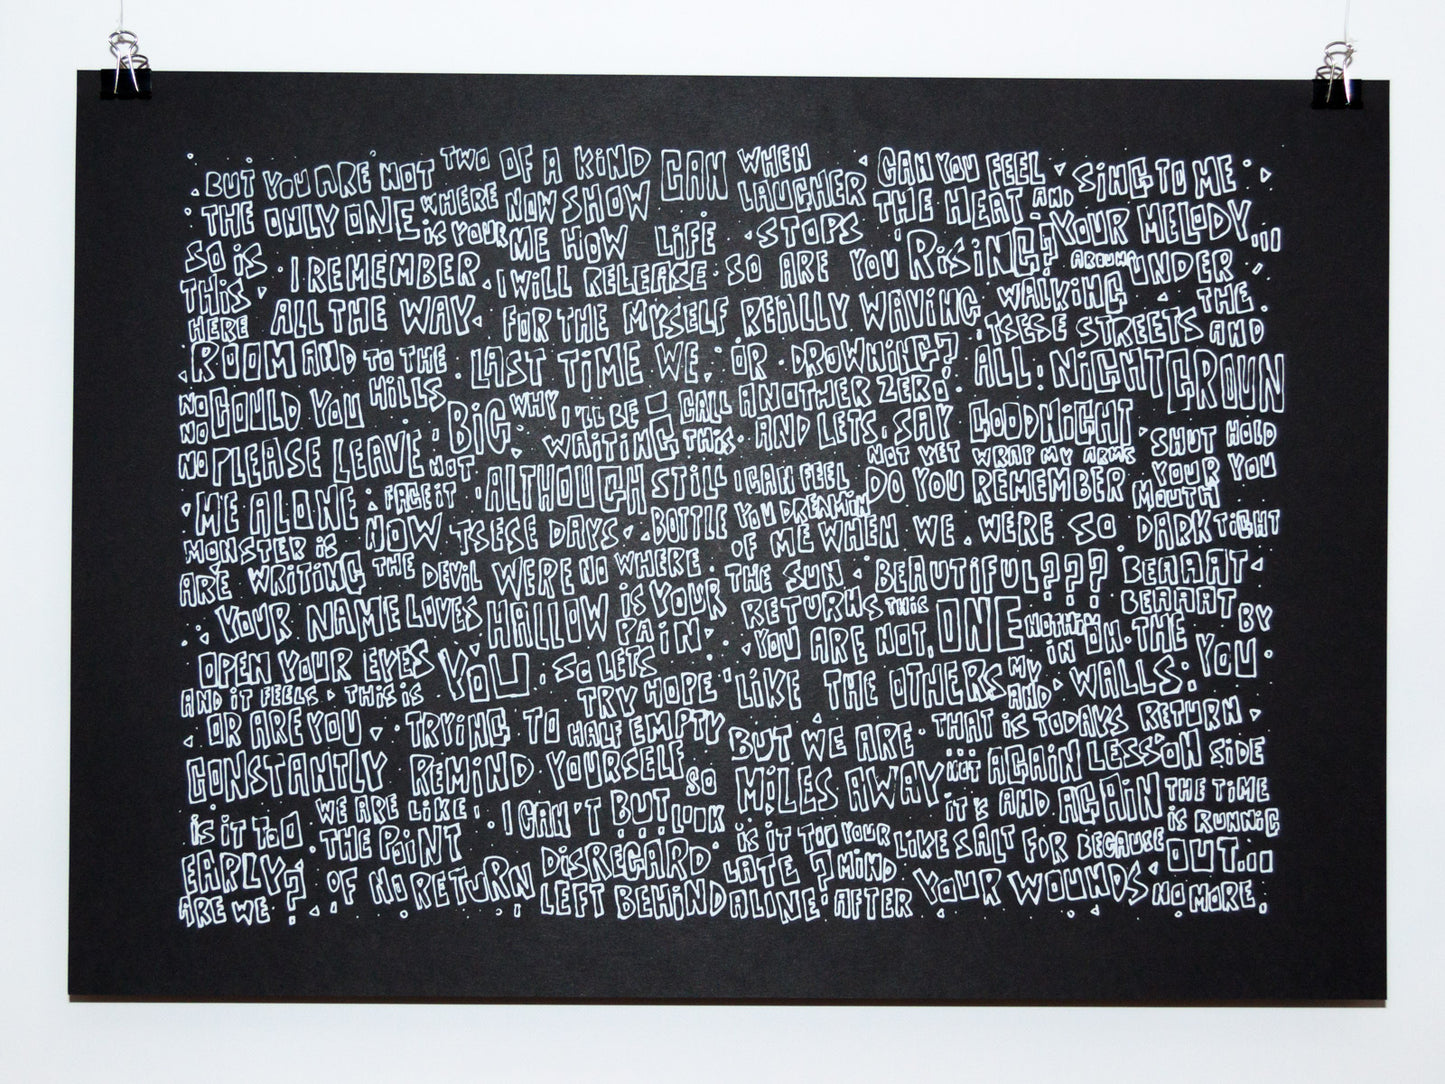 BUT YOU ARE NOT TWO OF A KIND CAN WHEN CAN YOU FEEL SING TO ME
THE ONLY ONE WHERE NOW SHOW LAUGHER THE HEAT AND
SO IS IS YOUR ME HOW LIFE STOPS RISING? YOUR MELODY...
THIS I REMEMBER I WILL RELEASE SO ARE YOU UNDER
HERE ALL THE WAY FOR THE MYSELF REALLY WAVING WALKING THE
ROOM AND TO THE LAST TIME WE OR DROWNING? TSESE STREETS AND
NO COULD YOU HILLS BIG WHY I'LL BE CALL ANOTHER ZERO ALL NIGHT GROUN
NO PLEASE LEAVE WAITING THIS AND LETS SAY GOODNIGHT SHUT HOLD
NO NOT ALTHOUGH STILL I CAN FEEL NOT YET WRAP MY ARMS YOUR YOU
ME ALONE FACE IT YOU DREAMIN DO YOU REMEMBER MOUTH
MONSTER IS NOW TSESE DAYS BOTTLE OF ME WHEN WE WERE SO DARK TIGHT
ARE WRITING THE DEVIL WERE NO WHERE THE SUN BEAUTIFUL??? BEAAAT
YOUR NAME LOVES HALLOW IS YOUR RETURNS THIS ONE BEAAAT BY
OPEN YOUR EYES YOU PAIN YOU ARE NOT, NOTHIN ON THE YOU
AND IT FEELS THIS IS SO LETS LIKE THE OTHERS MY IN WALLS.
OR ARE YOU TRYING TO TRY HOPE AND
CONSTANTLY REMIND HALF EMPTY BUT WE ARE THAT IS TODAYS RETURN
YOURSELF SO MILES AWAY ... NOT AGAIN LESSON SIDE
IS IT TOO WE ARE LIKE I CAN'T BUT... LOOK IT'S AND AGAIN THE TIME
EARLY? THE POINT DISREGARD IS IT TOO YOUR LIKE SALT FOR BECAUSE IS RUNNIG
ARE WE ? OF NO RETURN LEFT BEHIND LATE ? MIND YOUR WOUNDS OUT...
ALINE AFTER NO MORE.